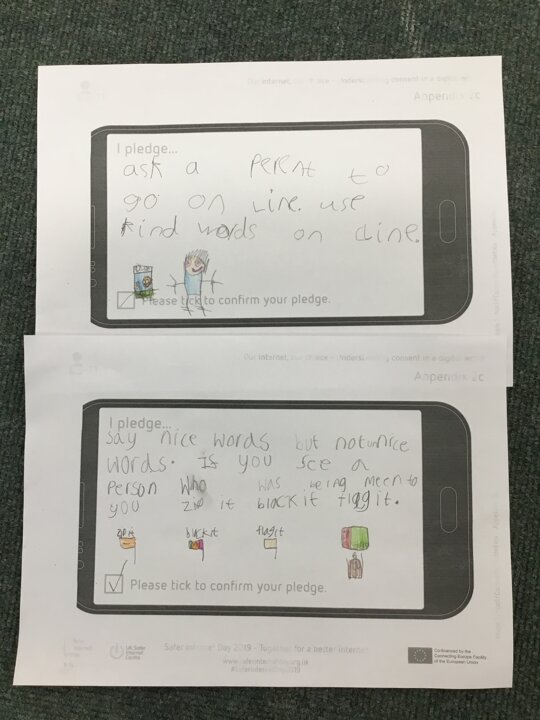 Our internet, our choice - Understanding consent in a digital world
Appendix 2c
I pledge...
ask a perent to
go on Line. use
kind words on Line.
Please tick to confirm your pledge.
Our internet, our choice - Understanding consent in a digital world
Appendix 2c
I pledge...
Say nice words but not unnice
words. is you see a
Person Who was being meen to
you zip it block it flag it.
zip it block it flag it
Please tick to confirm your pledge.
UK Safer Internet Centre
Safer Internet Day 2019 - Together for a better internet
www.saferinternetday.org.uk
#SaferInternetDay2019
Co-financed by the
Connecting Europe Facility
of the European Union